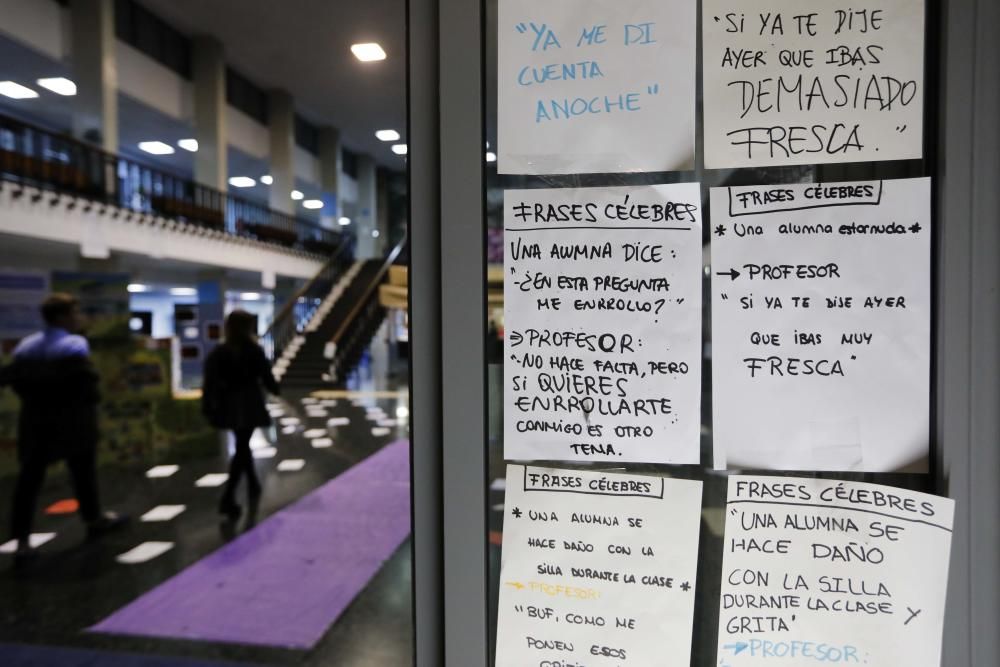 "YA ME DI
CUENTA
ANOCHE"
"SI YA TE DIJE
AYER QUE IBAS
DEMASIADO
FRESCA."
FRASES CÉLEBRES
UNA ALUMNA DICE:
"-¿EN ESTA PREGUNTA
ME ENRROLLO?"
⇒ PROFESOR:
"-NO HACE FALTA, PERO
SI QUIERES
ENRROLLARTE
CONMIGO ES OTRO
TEMA.
FRASES CÉLEBRES
* Una alumna estornuda *
→ PROFESOR
"SI YA TE DIJE AYER
QUE IBAS MUY
FRESCA"
FRASES CÉLEBRES
* UNA ALUMNA SE
HACE DAÑO CON LA
SILLA DURANTE LA CLASE *
→ PROFESOR:
"BUF, COMO ME
PONEN ESOS
FRASES CÉLEBRES
"UNA ALUMNA SE
HACE DAÑO
CON LA SILLA
DURANTE LA CLASE Y
GRITA"
→ PROFESOR: